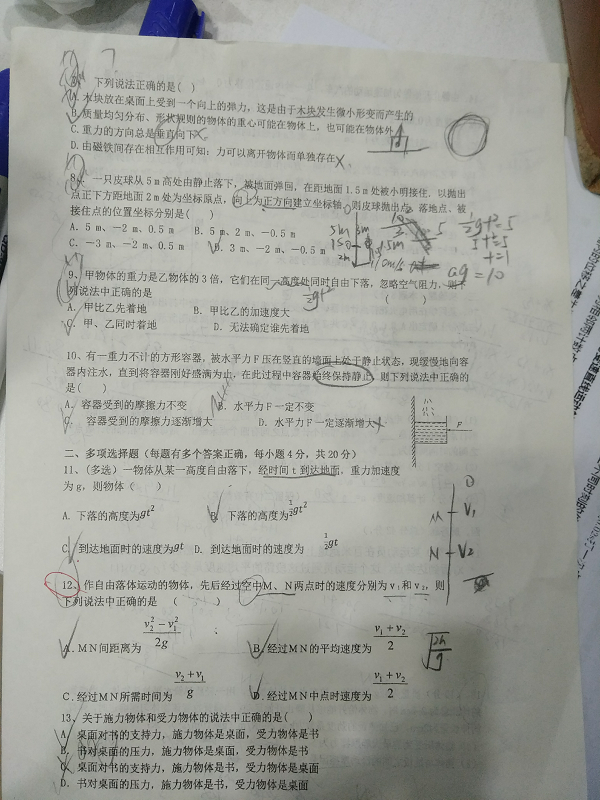 7、下列说法正确的是( )
A.木块放在桌面上受到一个向上的弹力，这是由于木块发生微小形变而产生的
B.质量均匀分布、形状规则的物体的重心可能在物体上，也可能在物体外
C.重力的方向总是垂直向下
D.由磁铁间存在相互作用可知：力可以离开物体而单独存在
8、一只皮球从5m高处由静止落下，被地面弹回，在距地面1.5m处被小明接住．以抛出
点正下方距地面2m处为坐标原点，向上为正方向建立坐标轴，则皮球抛出点、落地点、被
接住点的位置坐标分别是( )
A．5m、－2m、0.5m B．5m、2m、－0.5m
C．－3m、－2m、0.5m D．3m、－2m、－0.5m
9、甲物体的重力是乙物体的3倍，它们在同一高度处同时自由下落，忽略空气阻力，则下
列说法中正确的是 ( )
A．甲比乙先着地 B．甲比乙的加速度大
C．甲、乙同时着地 D．无法确定谁先着地
10、有一重力不计的方形容器，被水平力F压在竖直的墙面上处于静止状态，现缓慢地向容
器内注水，直到将容器刚好盛满为止，在此过程中容器始终保持静止，则下列说法中正确的
是( )
A．容器受到的摩擦力不变 B．水平力F一定不变
C．容器受到的摩擦力逐渐增大 D．水平力F一定逐渐增大
F
二、多项选择题（每题有多个答案正确，每小题4分，共20分）
11、(多选）一物体从某一高度自由落下，经时间t到达地面，重力加速度
为g，则物体（ ）
A．下落的高度为gt² B．下落的高度为½gt²
C．到达地面时的速度为gt D．到达地面时的速度为 ½gt²
12、作自由落体运动的物体，先后经过空中M、N两点时的速度分别为v₁和v₂，则
下列说法中正确的是 （ ）
A．MN间距离为 (v₂²－v₁²)/2g B．经过MN的平均速度为 (v₁＋v₂)/2
C．经过MN所需时间为 (v₂＋v₁)/g D．经过MN中点时速度为 (v₁＋v₂)/2
13、关于施力物体和受力物体的说法中正确的是( )
A．桌面对书的支持力，施力物体是桌面，受力物体是书
B．书对桌面的压力，施力物体是桌面，受力物体是书
C．桌面对书的支持力，施力物体是书，受力物体是桌面
D．书对桌面的压力，施力物体是书，受力物体是桌面